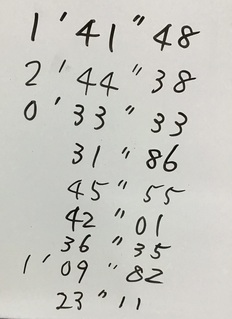 1 ' 41 " 48
2 ' 44 " 38
0 ' 33 " 33
31 " 86
45 " 55
42 " 01
36 " 35
1 ' 09 " 82
23 " 11